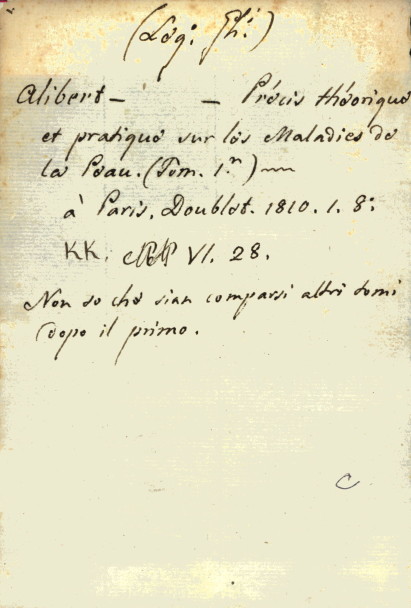 Alibert — — Précis théorique
et pratique sur les Maladies de
la Peau. (Tom. 1.º)
à Paris, Doublet. 1810. 1. 8:
KK. VI. 28.
Non so che sian comparsi altri tomi
dopo il primo.
C